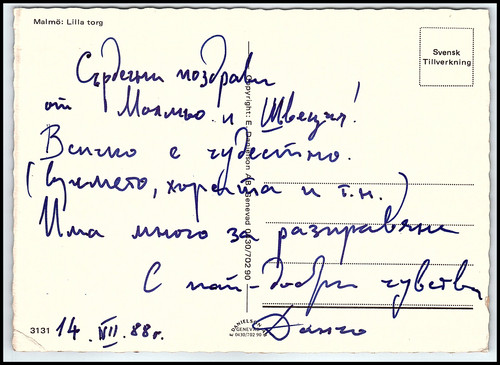 Malmö: Lilla torg
Svensk
Tillverkning
Сърдечни поздрави
от Малмьо и Швеция!
Всичко е чудестно.
(времето, хората и т.н.)
Има много за разправяне
С най-добри чувства
Данчо
3131 14. VII. 88г.
Copyright: E. Danielson AB, Genevad 0430/702 90
DANIELSON
GENEVAD
0430/702 90